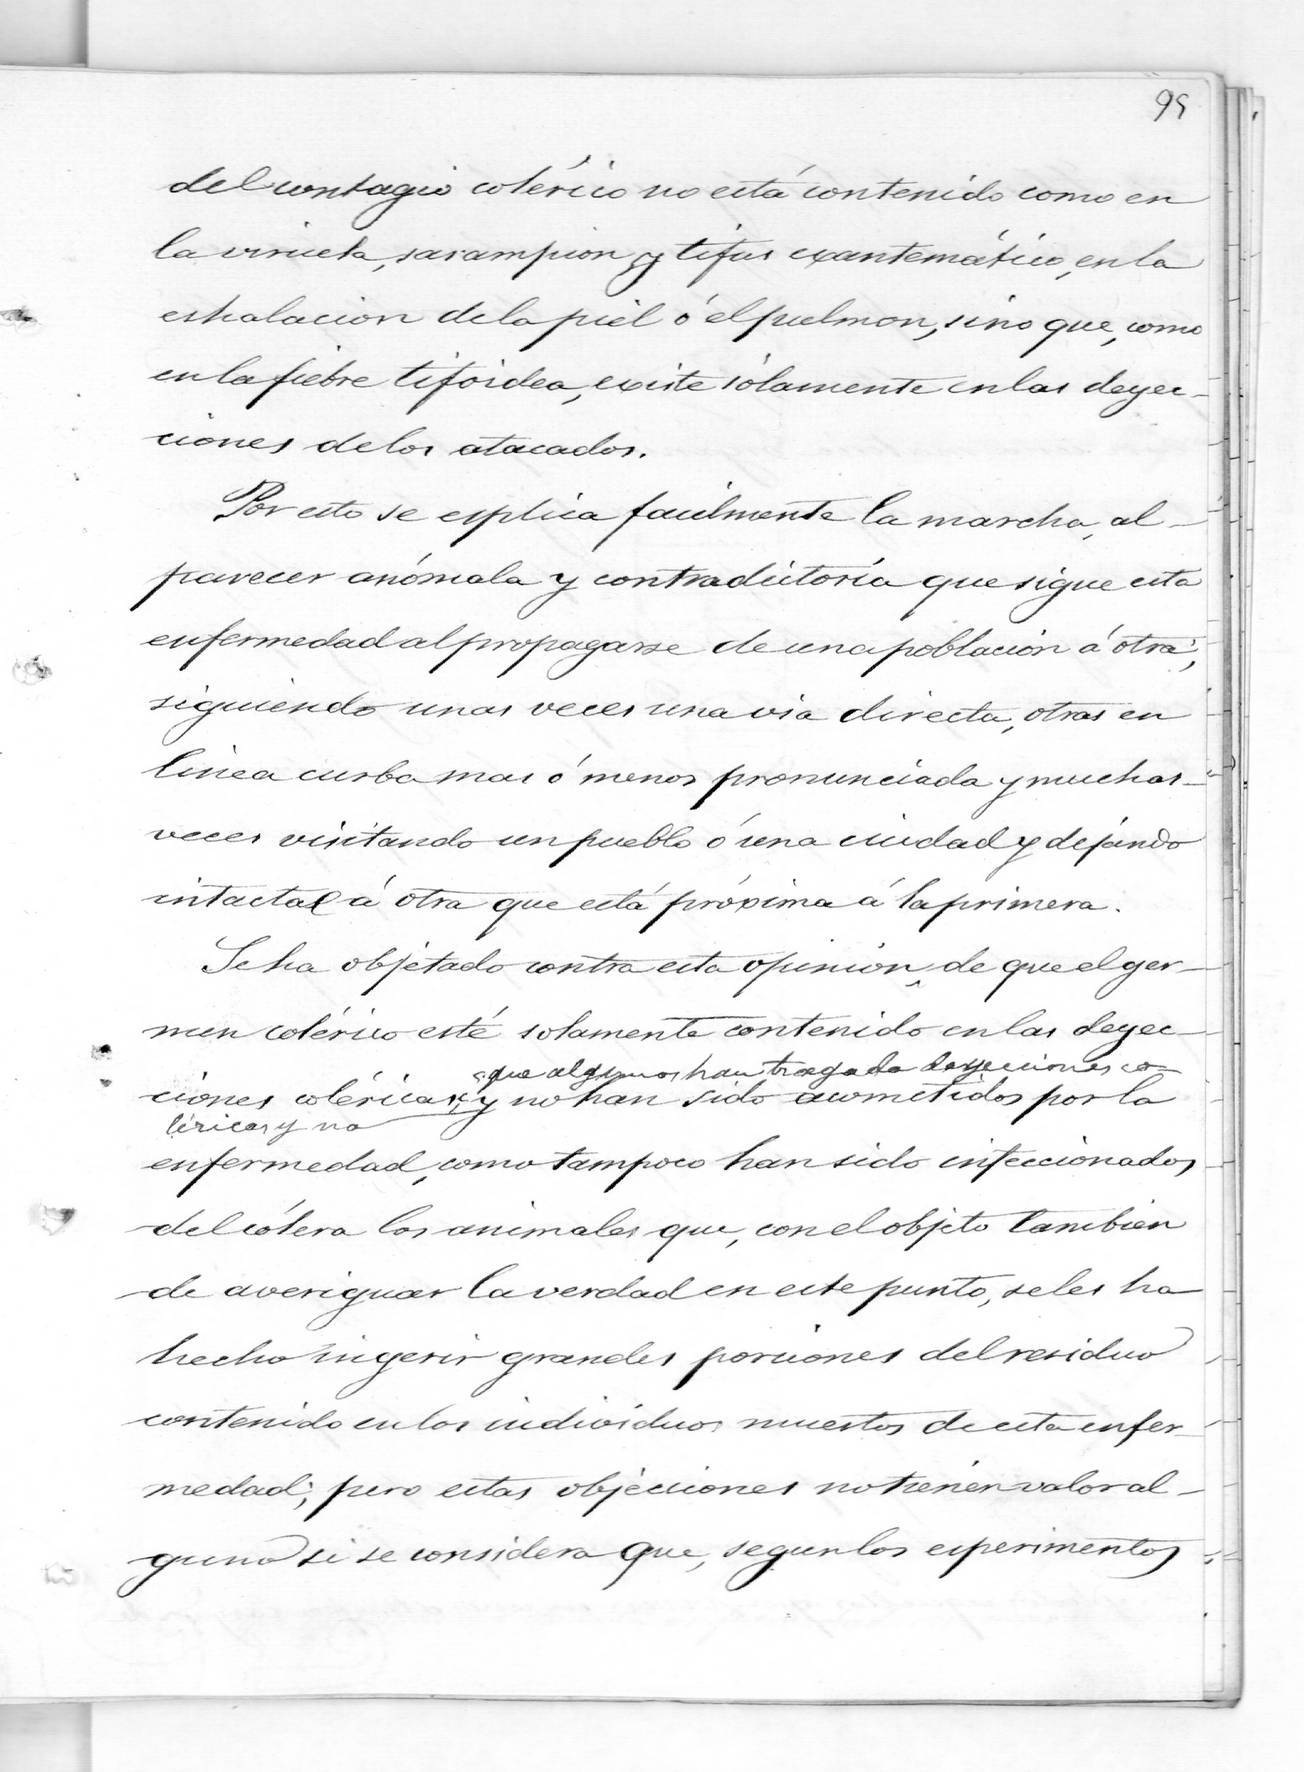 95
del contagio colérico no está contenido como en
la viruela, sarampion y tifus exantemático, en la
eshalacion de la piel ó el pulmon, sino que, como
en la fiebre tifoidea, existe sólamente en las deyec-
ciones de los atacados.
Por esto se esplica facilmente la marcha, al-
parecer anómala y contradictoria que sigue esta
enfermedad al propagarse de una poblacion á otra;
siguiendo unas veces una via directa, otras en
linea curba mas ó menos pronunciada y muchas-
veces visitando un pueblo ó una ciudad y dejando
intacta á otra que está próxima á la primera.
Se ha objetado contra esta opinion, de que el ger-
men colérico esté solamente contenido en las deyec-
que algunos han tragado deyecciones co-
ciones coléricas, y no han sido acometidos por la
léricas y no
enfermedad, como tampoco han sido infeccionados
del cólera los animales que, con el objeto tambien
de averiguar la verdad en este punto, se les ha
hecho ingerir grandes porciones del residuo
contenido en los individuos muertos de esta enfer-
medad; pero estas objecciones no tienen valor al-
guno si se considera que, segun los esperimentos